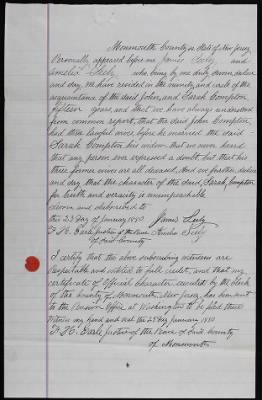 Monmouth County & State of New Jersey
Personally appeared before me James
and
Amelia who being by me duly sworn
and say, We have resided in the vicinity and circle of the
acquaintance of the said John, and Sarah Compton
fifteen years, and that we have always understood
from common report, that the said John Compton
had three lawful wives before he married the said
Sarah Compton his widow that we never heard
that any person ever expressed a doubt but that his
three former wives are all deceased. And we further declare
and say that the character of the said Sarah Compton
for truth and veracity is unimpeachable
Sworn and subscribed to
this 23 day of January 1880 James
Justice of the Peace Amelia
of said County
I certify that the above subscribing witnesses are
respectable and entitled to full credit, and that my
certificate of Official Character executed by the Clerk
of the County of Monmouth, New Jersey, has been sent
to the Pension Office at Washington to be filed there
Witness my hand and seal the 23 day January 1880
Justice of the Peace of said County
of Monmouth